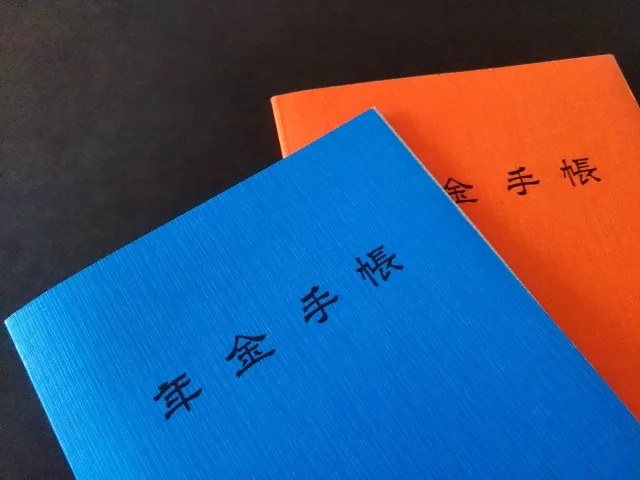 年金手帳
金手帳